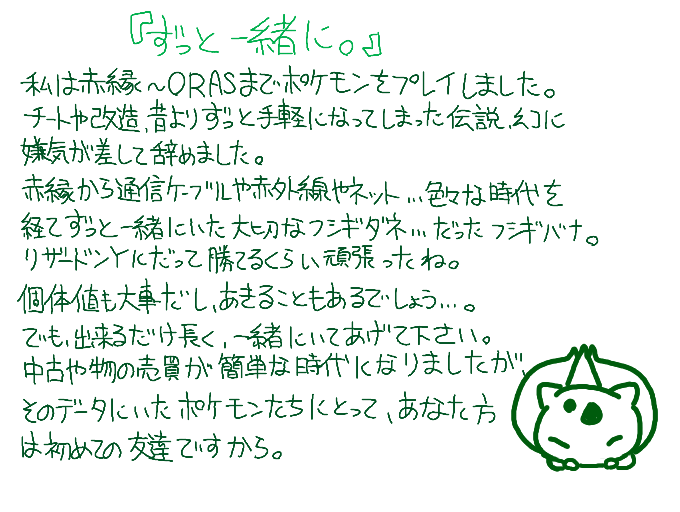 『ずっと一緒に。』
私は赤縁～ORASまでポケモンをプレイしました。
チートや改造、昔よりずっと手軽になってしまった伝説、幻に
嫌気が差して辞めました。
赤縁から通信ケーブルや赤外線やネット…色々な時代を
経てずっと一緒にいた大切なフシギダネ…だったフシギバナ。
リザードンYにだって勝てるくらい頑張ったね。
個体値も大事だし、あきることもあるでしょう…。
でも、出来るだけ長く、一緒にいてあげて下さい。
中古や物の売買が簡単な時代になりましたが、
そのデータにいたポケモンたちにとって、あなた方
は初めての友達ですから。